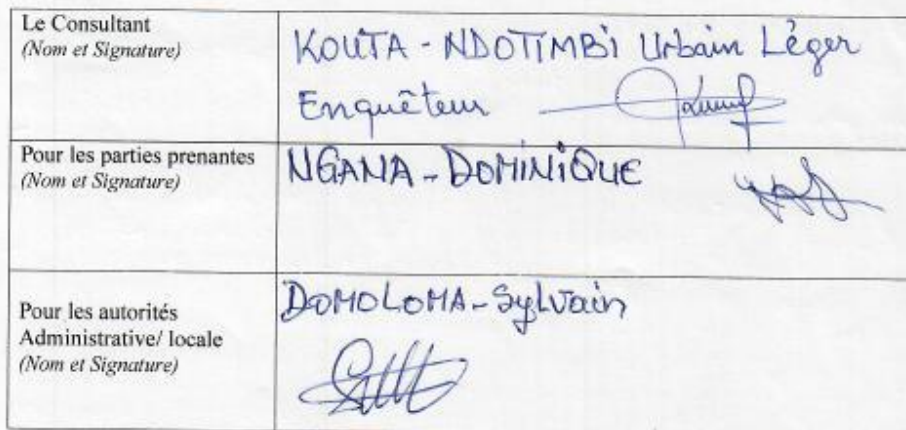 Le Consultant
(Nom et Signature)
KOUTA - NDOTIMBi Urbain Léger
Enquêteur
Pour les parties prenantes
(Nom et Signature)
NGANA - DOMiNiQUE
Pour les autorités
Administrative/ locale
(Nom et Signature)
DOMOLOMA - Sylvain